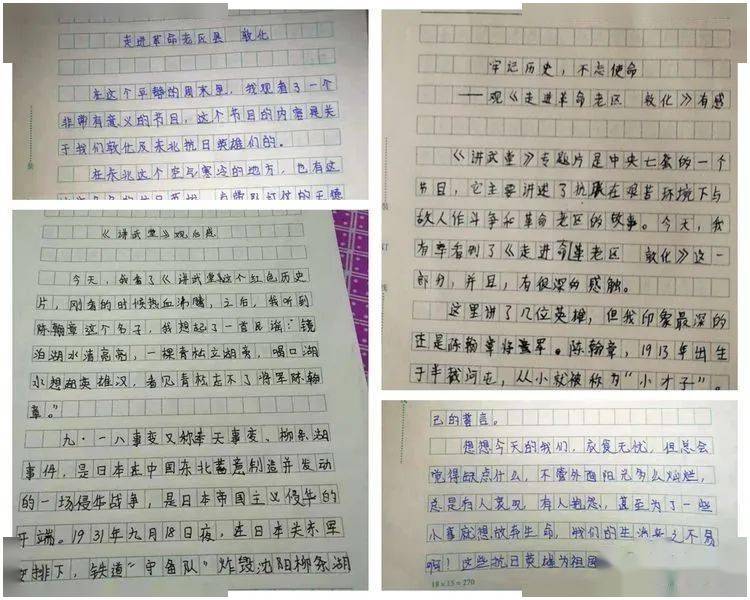 走进革命老区县 敦化
在这个平静的周末里，我观看了一个
非常有意义的节目，这个节目的内容是关
于我们敦化及东北抗日英雄们的。
在东北这个空气寒冷的地方，也有这
《讲武堂》观后感
今天，我看了《讲武堂》这个红色历史
片，刚看的时候热血沸腾，之后，我听到
陈翰章这个名子，我想起了一首民谣：镜
泊湖水清亮亮，一棵青松立湖旁，喝口湖
水想起英雄汉，看见青松忘不了将军陈翰
章。"
九·一八事变又称奉天事变、柳条湖
事件，是日本在中国东北蓄意制造并发动
的一场侵华战争，是日本帝国主义侵华的
开端。1931年九月18日夜，在日本关东军
安排下，铁道"守备队"炸毁沈阳柳条湖
牢记历史，不忘使命
——观《走进革命老区 敦化》有感
《讲武堂》专题片是中央七套的一个
节目，它主要讲述了抗联在艰苦环境下与
敌人作斗争和革命老区的故事。今天，我
有幸看到了《走进命革老区 敦化》这一
部分，并且，有很深的感触。
这里讲了几位英雄，但我印象最深的
还是陈翰章将军。陈翰章，1913年出生
于半截河屯，从小就被称为"小才子"。
己的誓言。
想想今天的我们，衣食无忧，但总会
觉得缺点什么，不管外面阳光多么灿烂，
总是有人哀叹，有人抱怨，甚至为了一些
小事就想放弃生命，我们的生活来之不易
啊！这些抗日英雄为祖国
18×15=270